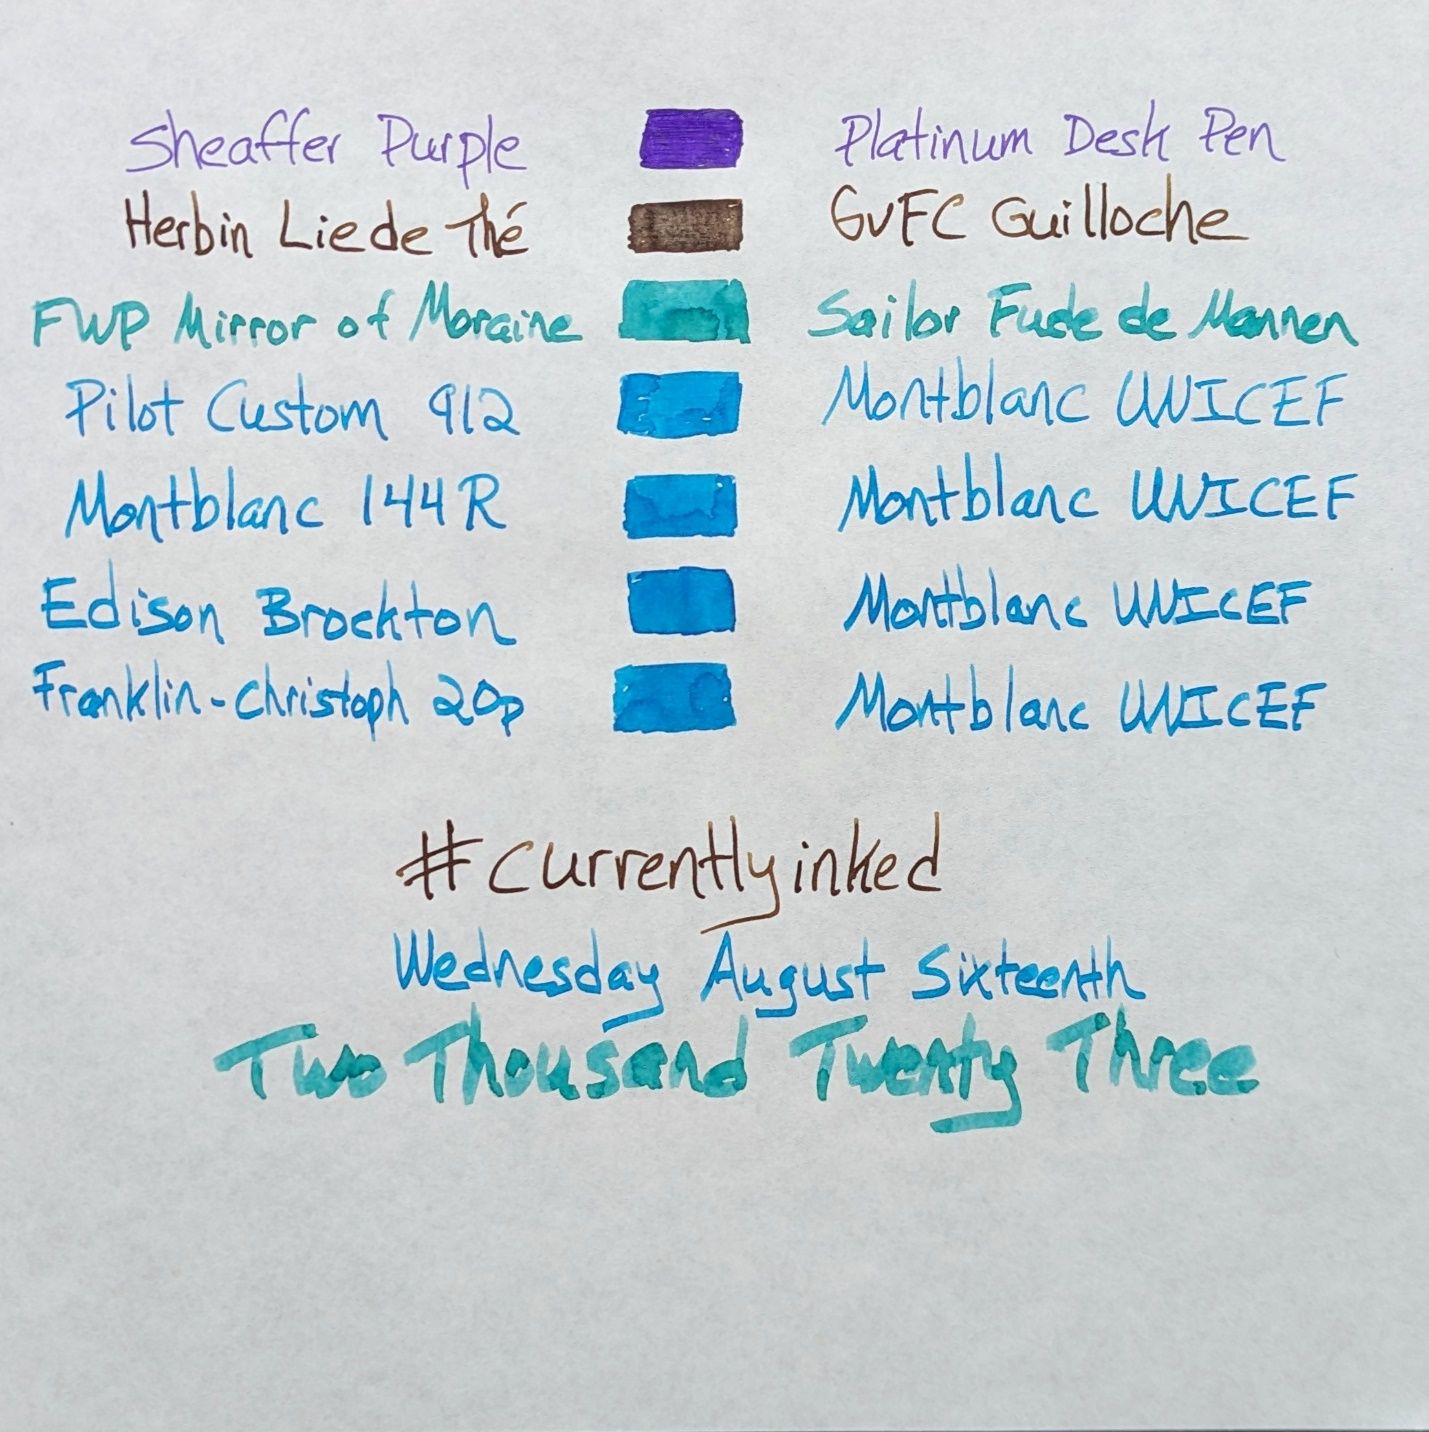 Sheaffer Purple Platinum Desk Pen
Herbin Lie de Thé GvFC Guilloche
FWP Mirror of Moraine Sailor Fude de Mannen
Pilot Custom 912 Montblanc UNICEF
Montblanc 144R Montblanc UNICEF
Edison Brockton Montblanc UNICEF
Franklin-Christoph 20p Montblanc UNICEF
#currentlyinked
Wednesday August Sixteenth
Two Thousand Twenty Three